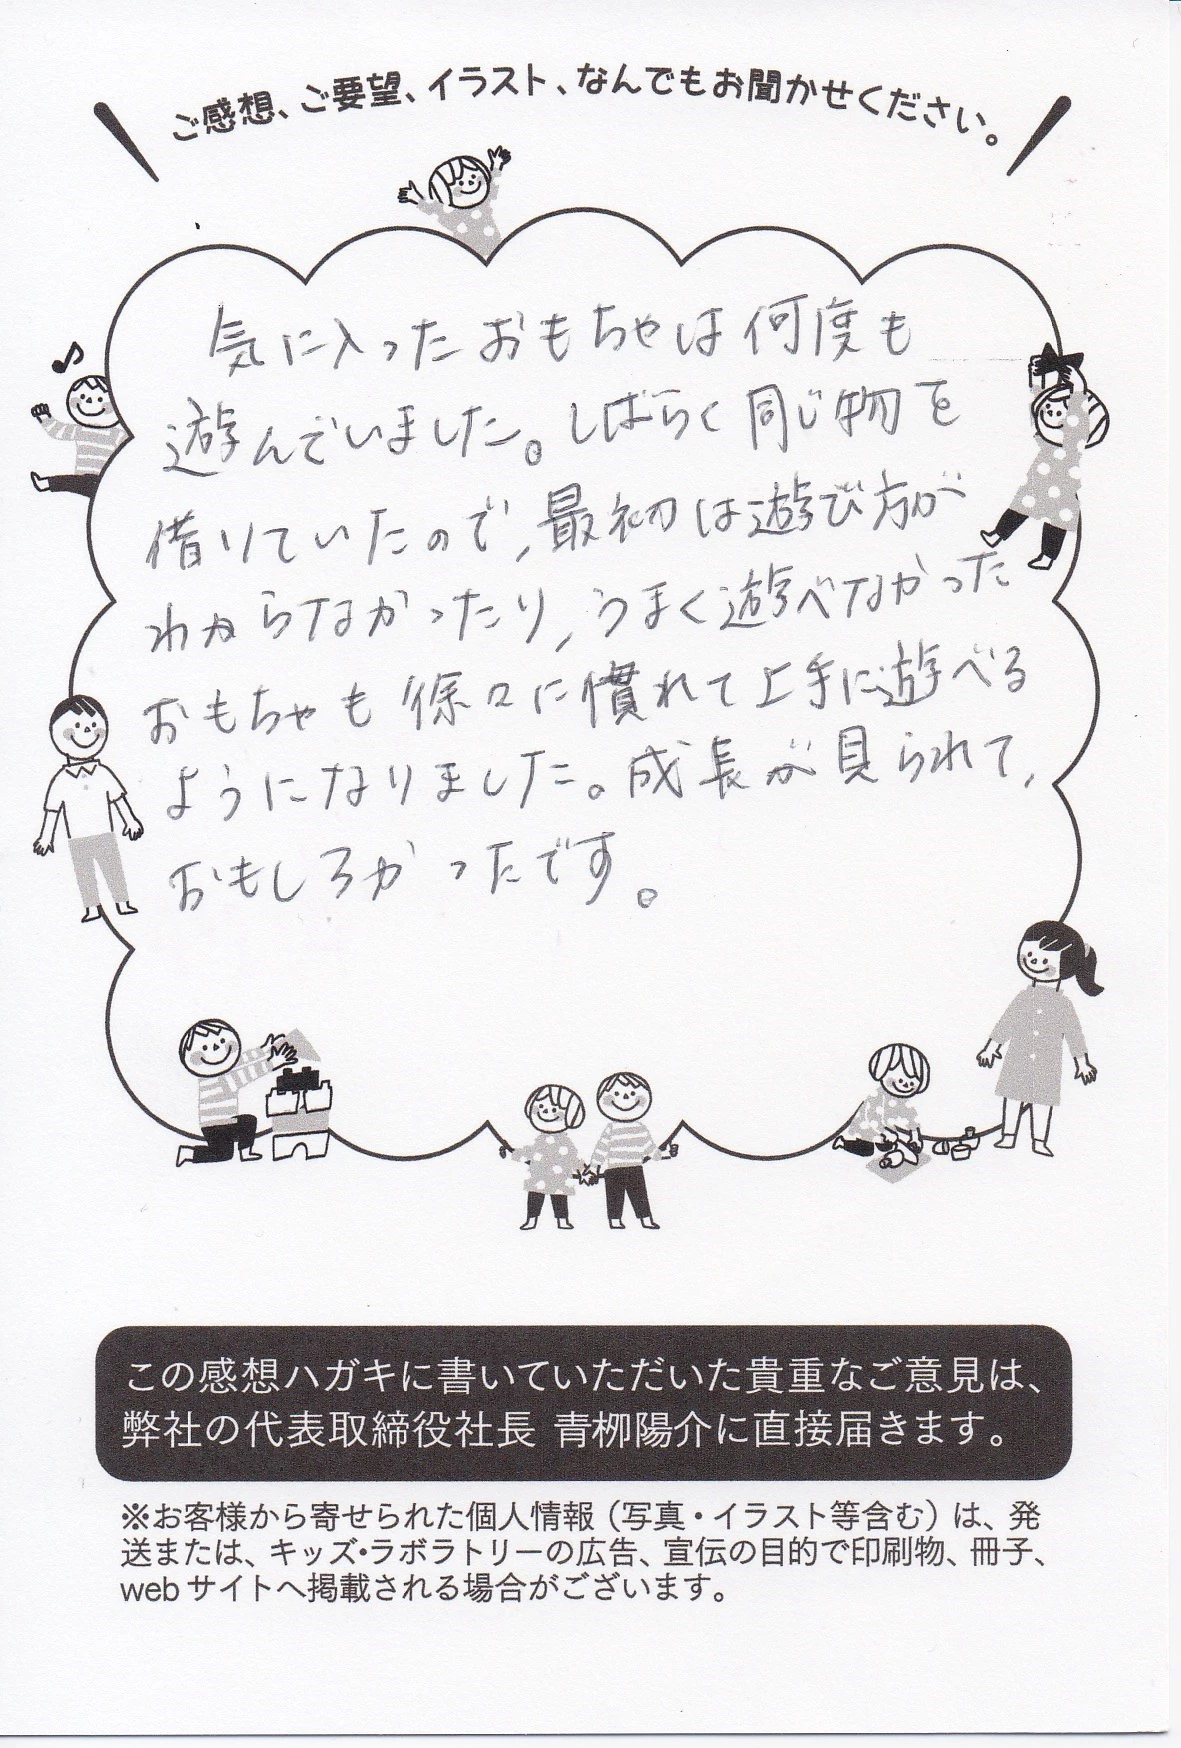 ご感想、ご要望、イラスト、なんでもお聞かせください。
気に入ったおもちゃは何度も
遊んでいました。しばらく同じ物を
借りていたので、最初は遊び方が
わからなかったり、うまく遊べなかった
おもちゃも徐々に慣れて上手に遊べる
ようになりました。成長が見られて、
おもしろかったです。
この感想ハガキに書いていただいた貴重なご意見は、
弊社の代表取締役社長 青栁陽介に直接届きます。
※お客様から寄せられた個人情報（写真・イラスト等含む）は、発
送または、キッズ・ラボラトリーの広告、宣伝の目的で印刷物、冊子、
webサイトへ掲載される場合がございます。